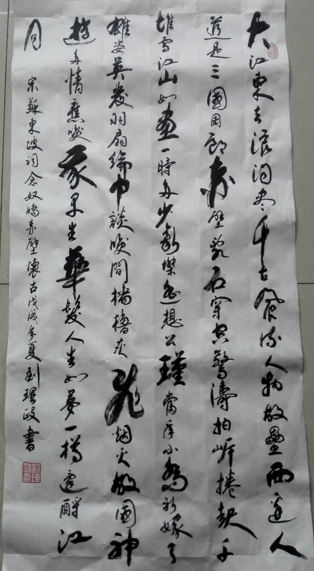 大江東去浪淘盡千古風流人物故壘西邊人
道是三國周郎赤壁亂石穿空驚濤拍岸捲起千
堆雪江山如畫一時多少豪傑遙想公瑾當年小喬初嫁了
雄姿英發羽扇綸巾談笑間檣櫓灰飛烟灭故國神
遊多情應笑我早生華髮人生如夢一樽還酹江
月
宋蘇東坡詞念奴嬌赤壁懷古戊戌年夏刘理政書